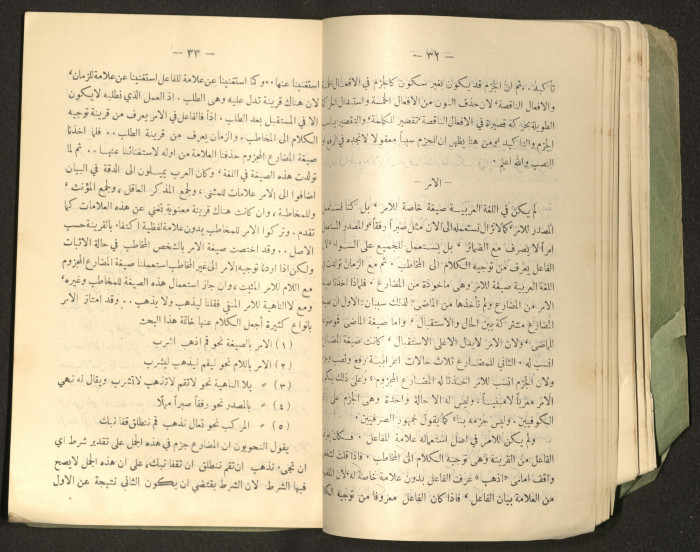 — ٣٢ —
تأكيد. ثم ان الجزم قد يكون بغير سكون كالجزم في الافعال
والافعال الناقصة لان حذف النون من الافعال الخمسة واستبدال
الطويلة بحركة قصيرة في الافعال الناقصة تقصير الكلمة والتقصير
الجزم والتاكيد ومن هنا يظهر ان للجزم سبباً معقولا لانجده في
النصب والله اعلم
— الامر —
لم يكن في اللغة العربية صيغة خاصة للامر بل كنا
المصدر للامر كما لانزال نستعمله الى الان مثل صبراً رفقاً والمصدر
امراً لا يصرف مع الضمائر بل يستعمل للجميع على السواء لان
الفاعل يعرف من توجيه الكلام الى المخاطب ثم مع الزمان تولدت
اللغة العربية صيغة للامر وهي ماخوذة من المضارع فلماذا اخذنا
الامر من المضارع ولم نأخذها من الماضي لذلك سببان الاول ان
المضارع مشتركة بين الحال والاستقبال واما صيغة الماضي
للماضي ولان الامر لايدل الا على الاستقبال كانت صيغة
انسب له الثاني للمضارع ثلاث حالات اعرابية رفع ونصب
ولان الجزم انسب للامر اخذنا له المضارع المجزوم وعلى ذلك
الامر معرباً لامبنياً وليس له الا حالة واحدة وهي الجزم على
الكوفيين وليس جزمه بناء كما يقول جمهور الصرفيين
ولم يكن للامر في اصل استعماله علامة للفاعل
الفاعل من القرينة وهي توجيه الكلام الى المخاطب فاذا قلت
واقف امامي «اذهب» عرف الفاعل بدون علامة خاصة له لان
من العلامة بيان الفاعل فاذا كان الفاعل معروفاً من توجيه
— ٣٣ —
استغنينا عنها.. وكما استغنينا عن علامة للفاعل استغنينا عن علامة للزمان
لان هناك قرينة تدل عليه وهي الطلب. اذ العمل الذي نطلبه لايكون
الا في المستقبل بعد الطلب. اذاً فالفاعل في الامر يعرف من قرينة توجيه
الكلام الى المخاطب. والزمان يعرف من قرينة الطلب.. فلما اخذنا
صيغة المضارع المجزوم حذفنا العلامة من اوله لاستغنائنا عنها... ثم لما
تولدت هذه الصيغة في اللغة وكان العرب يميلون الى الدقة في البيان
اضافوا الى الامر علامات للمثنى، ولجمع المذكر العاقل، ولجمع المؤنث
وللمخاطبة، وان كانت هناك قرينة معنوية تغني عن هذه العلامات كما
تقدم. وتركوا الامر للمخاطب بدون علامة لفظية اكتفاء بالقرينة حسب
الاصل.. وقد اختصت صيغة الامر بالشخص المخاطب في حالة الاثبات
ولكن اذا اردنا توجيه الامر الى غير المخاطب استعملنا صيغة المضارع المجزوم
مع اللام للامر المثبت، وان جاز استعمال هذه الصيغة للمخاطب وغيره
ومع لا الناهية للامر المنفي فقلنا ليذهب ولا يذهب.. وقد امتاز الامر
بانواع كثيرة أجعل الكلام عنها خاتمة هذا البحث
(١) الامر بالصيغة نحو قم اذهب اشرب
(٢) الامر باللام نحو ليقم ليذهب ليشرب
(٣) » بلا الناهية نحو لاتقم لاتذهب لاتشرب ويقال له نهي
(٤) » بالمصدر نحو رفقاً صبراً مهلا
(٥) » المركب نحو تعال نذهب قم ننطلق قفا نبك
يقول النحويون ان المضارع جزم في هذه الجمل على تقدير شرط اي
ان تجيء نذهب ان تقم ننطلق ان تقفا نبك، على ان هذه الجمل لايصح
فيها الشرط لان الشرط يقتضي ان يكون الثاني نتيجة عن الاول